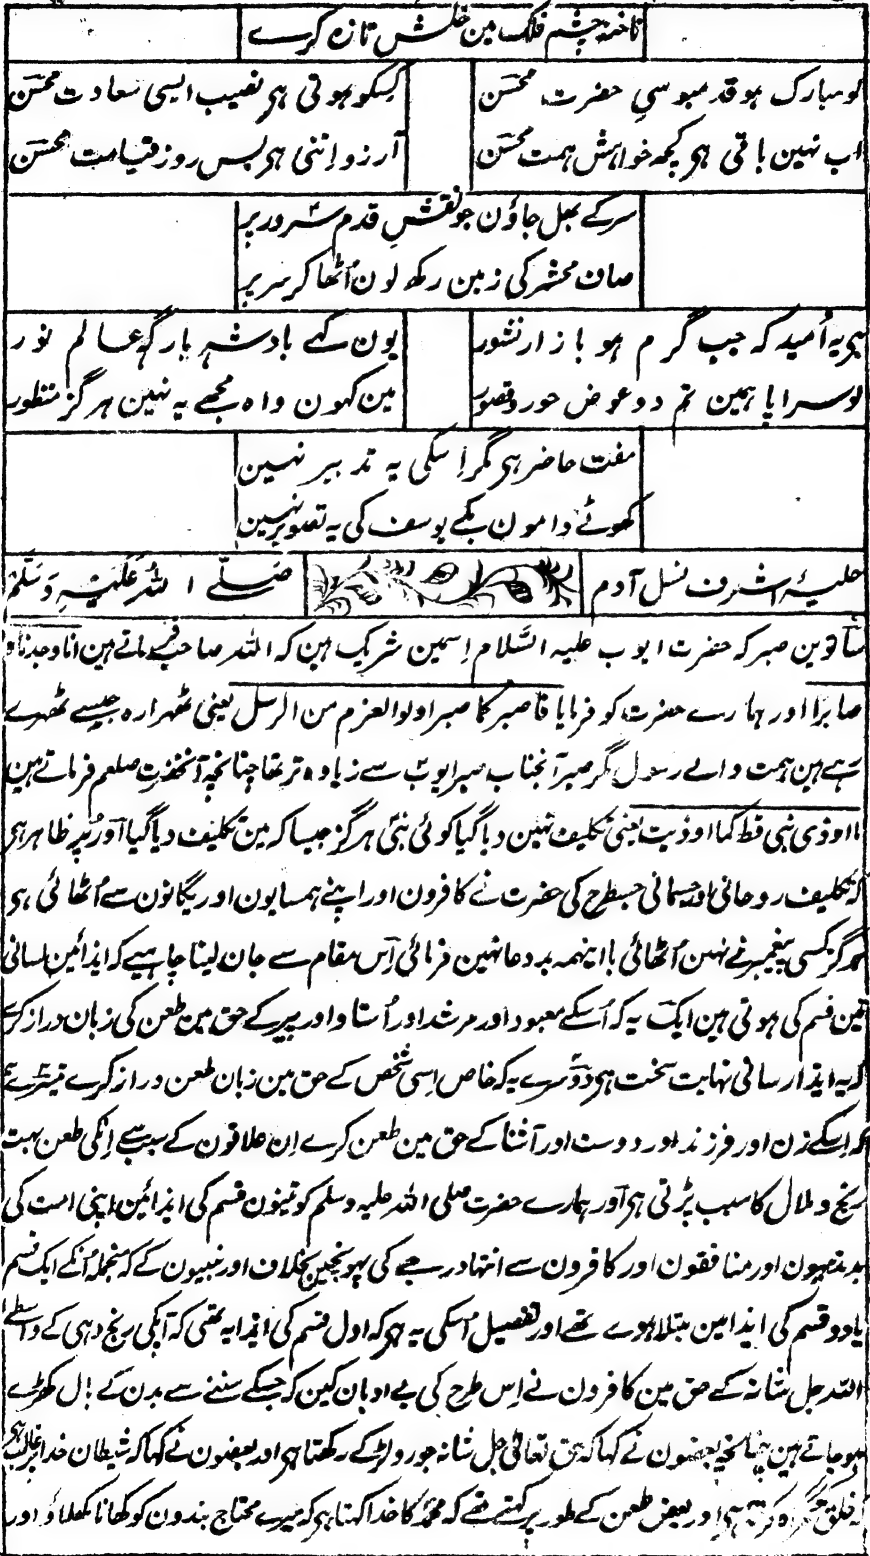 ناخنہ چشم فلک مین خلش تازہ کرے
لو مبارک ہو قدمبوسیِ حضرت محسنؔ کسکو ہوتی ہی نصیب ایسی سعادت محسنؔ
اب نہین باقی ہی کچھ خواہش ہمت محسنؔ آرزو اتنی ہی بس روز قیامت محسنؔ
سر کے بھل جاؤن جو نقشِ قدم سرور پر
صاف محشر کی زمین رکھ لون اُٹھا کر سر پر
ہی یہ اُمید کہ جب گرم ہو بازار نشور یون کہے بادشہ بارگہ عالم نور
لو سراپا ہمین تم دو عوض حور و قصور مین کہون واہ مجھے یہ نہین ہرگز منظور
مفت حاضر ہی مگر اِسکی یہ تدبیر نہین
کھوٹے دامون بکے یوسف کی یہ تصویر نہین
حلیۂ اشرف نسل آدم صَلَّے اللہُ عَلَیْہِ وَسَلَّم
ساتوین صبر کہ حضرت ایوب علیہ السَّلام اِسمین شریک ہین کہ اللہ صاحب فرماتے ہین انا وجدناہ
صابرًا اور ہمارے حضرت کو فرمایا فاصبر کما صبر اولوا العزم من الرسل یعنی ٹھہرارہ جیسے ٹھہرے
رہے ہین ہمت والے رسول مگر صبر آنجناب صبر ایوب سے زیادہ تر تھا چنانچہ آنحضرت صلعم فرماتے ہین
ما اوذی نبی قط کما اوذیت یعنی تکلیف نہین دیا گیا کوئی نبی ہرگز جیسا کہ مین تکلیف دیا گیا اور پر ظاہر ہی
کہ تکلیف روحانی اور جسمانی جسطرح کی حضرت نے کافرون اور اپنے ہمسایون اور یگانون سے اُٹھائی ہی
ہرگز کسی پیغمبر نے نہین اُٹھائی باینہمہ بد دعا نہین فرمائی اِس مقام سے جان لینا چاہیے کہ ایذائین لسانی
تین قسم کی ہوتی ہین ایک یہ کہ اُسکے معبود اور مرشد اور اُستاد اور پیر کے حق مین طعن کی زبان دراز کرے
کہ یہ ایذا رسانی نہایت سخت ہی دوسرے یہ کہ خاص اِسی شخص کے حق مین زبان طعن دراز کرے تیسرے
کہ اِسکے زن اور فرزند اور دوست اور آشنا کے حق مین طعن کرے اِن علاقون کے سبب سے اِنکی طعن بہت
رنج و ملال کا سبب پڑتی ہی اور ہمارے حضرت صلی اللہ علیہ وسلم کو تینون قسم کی ایذائین اپنی امت کی
بدمذہبون اور منافقون اور کافرون سے انتہا درجے کی پہونچین بخلاف اور نبیون کے کہ منجملہ اُنکے ایک قسم
یا دو قسم کی ایذا مین مبتلا ہوے تھے اور تفصیل اُسکی یہ ہی کہ اول قسم کی ایذا یہ تھی کہ آپکی رنج دہی کے واسطے
اللہ جل شانہ کے حق مین کافرون نے اِس طرح کی بے ادبیان کین کہ جسکے سننے سے بدن کے بال کھڑے
ہو جاتے ہین چنانچہ بعضون نے کہا کہ حق تعالٰی جل شانہ جورو لڑکے رکھتا ہی اور بعضون نے کہا کہ شیطان خدا پر غالب ہی
کہ خلق کو گمراہ کرتا ہی اور بعض طعن کے طور پر کہتے تھے کہ محمدؐ کا خدا کہتا ہی کہ میرے محتاج بندون کو کھانا کھلاؤ اور